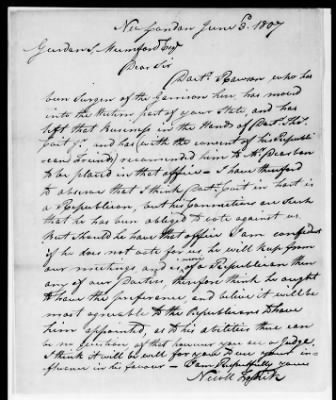 New London June 6. 1807
Gurdon S. Mumford Esqr
Dear Sir
Doctr Rawson who has
been Surgen of the Garrison here, has moved
into the Western part of your State, and has
left that business in the Hands of Doct. Thos.
Coit Jr and has (with the consent of his Republi
cean Friends) recommended him to Mr Dearbon
to be placed in that office — I have therefore
to observe that I think Doct. Coit in hart is
a Republican, but his Connections are Such
that he has been obliged to vote against us.
But Should he have that office I am confident
if he does not vote for us he will keep from
our meetings, and is more of a Republican then
any of our Docters, therefore think he ought
to have the preferance, and beleve it will be
most agreeable to the Republicans to have
him appointed, as to his abilities thare can
be no question, of that however you are a Judge,
I think it will be well for you to use your in-
fluence in his favour — I am Respectfully yours